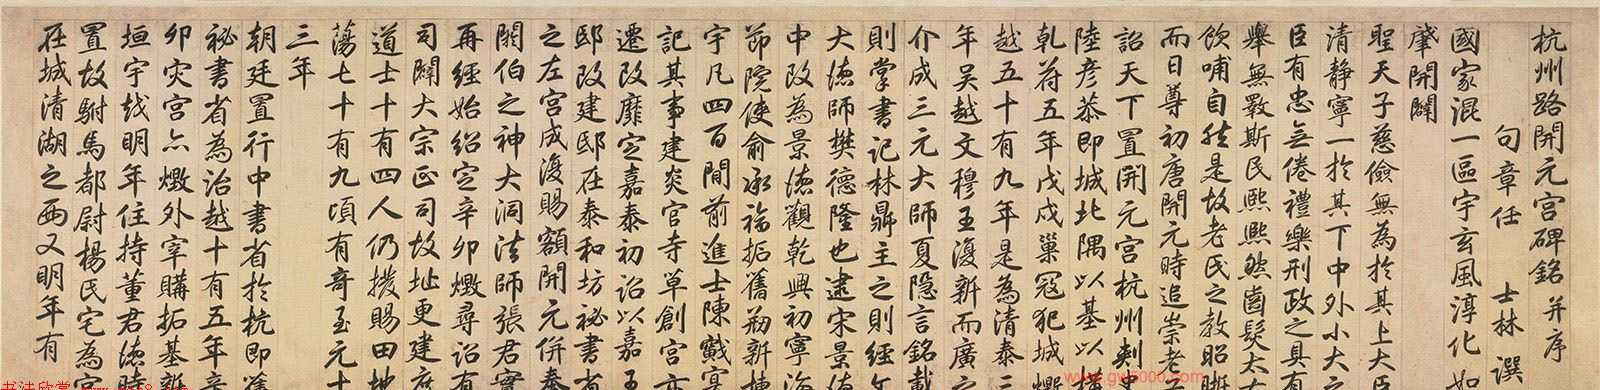 杭州路開元宮碑銘并序
句章任士林譔
國家混一區宇玄風淳化如
肇開闢
聖天子慈儉無為於其上大臣
清靜寧一於其下中外小大之
臣有忠無倦禮樂刑政之具有
舉無斁斯民熙熙然齒髮太古
飲哺自然是故老氏之教昭晰
而日尊初唐開元時追崇老
詔天下置開元宮杭州刺
陸彥恭即城北隅以基以
乹符五年戊戌巢寇犯城爟
越五十有九年是為清泰三
年吴越文穆王復新而廣之
介成三元大師夏隱言銘載
則掌書記林鼎主之則經
大德師樊德隆也逮宋景德
中改為景德觀乾興初寧海
節院使俞承福拓舊剏新棟
宇凡四百間前進士陳戩寔
記其事建炎官寺草創宮
遷改靡定嘉泰初詔以嘉王
邸改建邸在泰和坊秘書省
之左宮成復賜額開元併奉
閼伯之神大洞法師張君實
再經始紹定辛卯燬尋詔有
司闢大宗正司故址更建度
道士十有四人仍撥賜田地
蕩七十有九頃有奇至元十
三年
朝廷置行中書省於杭即舊
祕書省為治越十有五年辛
卯灾宮亦燬外宰購拓基新
垣宇越明年住持董君德時
置故駙馬都尉楊氏宅為宮
在城清湖之西又明年有
书法欣赏
www.gw5000.com